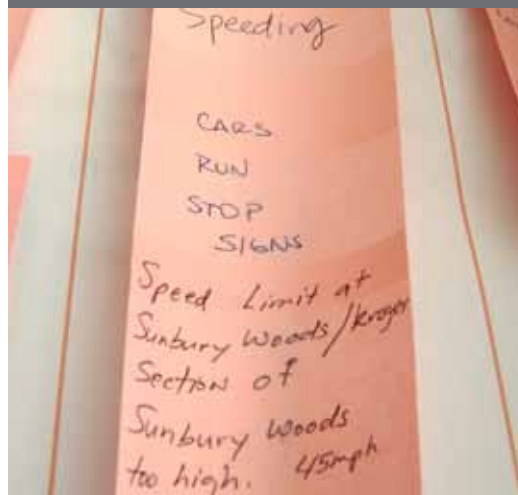 Speeding
CARS
RUN
STOP
SIGNS
Speed Limit at
Sunbury Woods/Kroger
Section of
Sunbury Woods
too high. 45mph